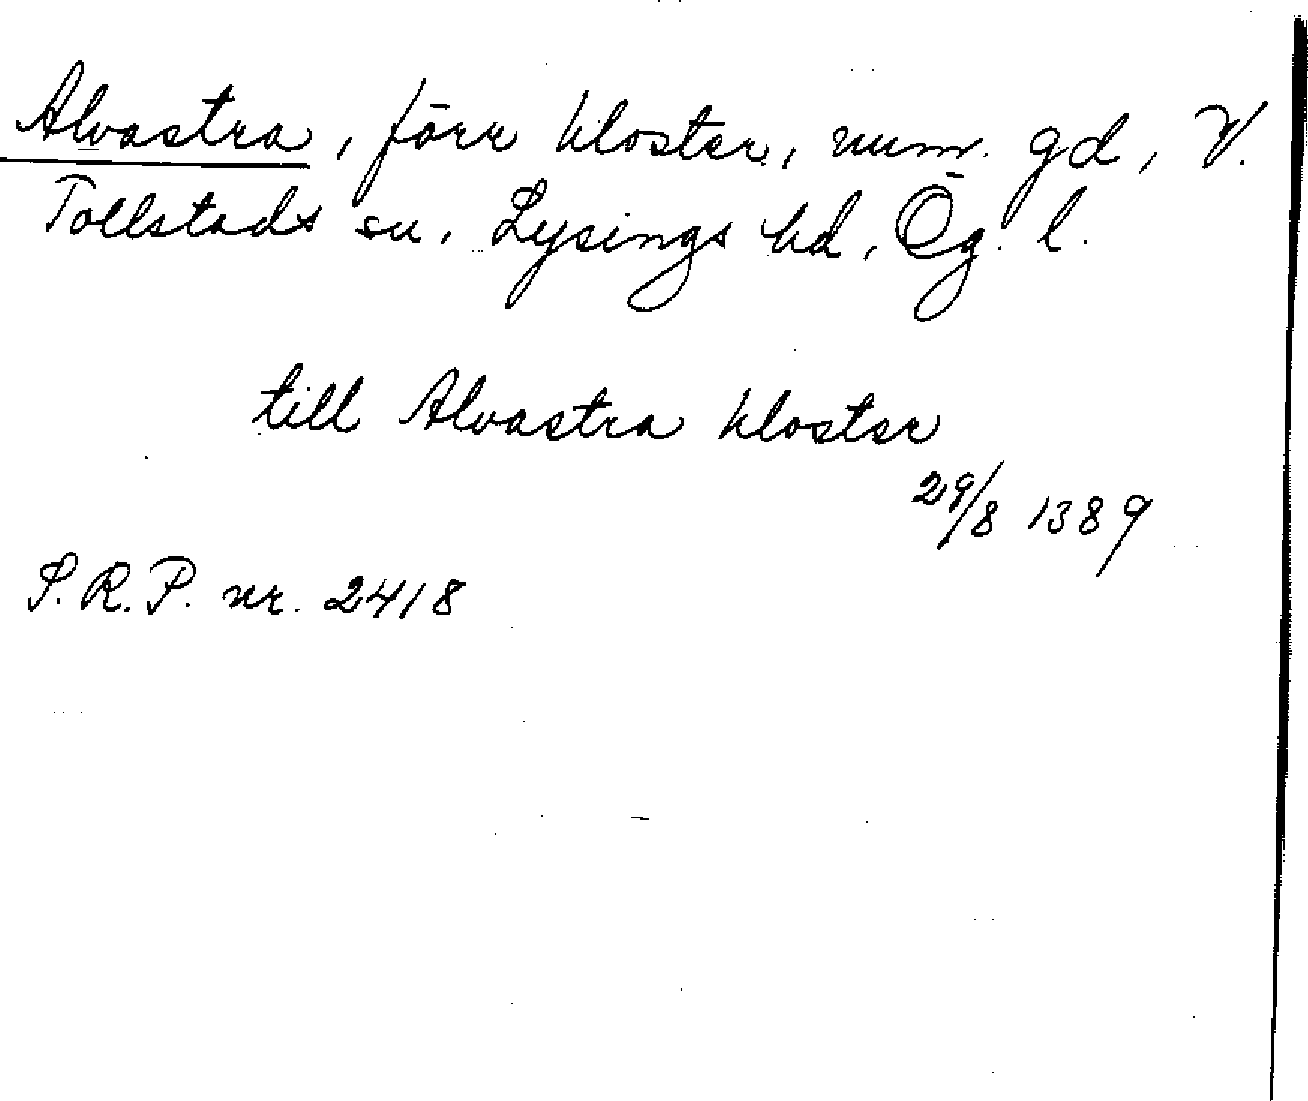 Alvastra, förr kloster, num. gd, V.
Tollstads sn, Lysings hd, Ög. l.
till Alvastra kloster
29/8 1389
S.R.P. nr. 2418